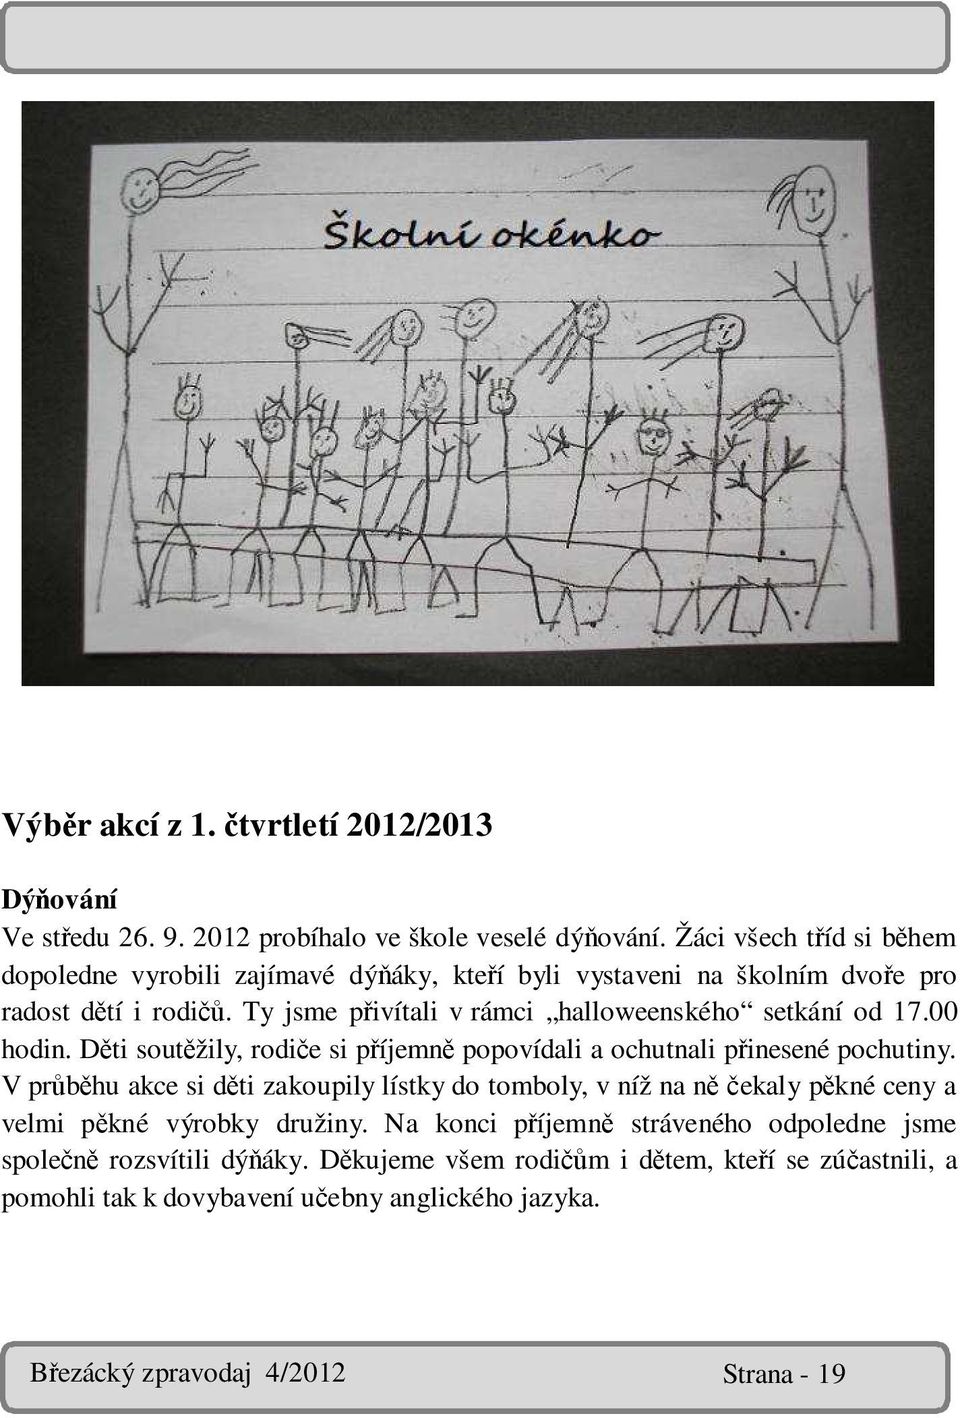 Školní okénko
Výběr akcí z 1. čtvrtletí 2012/2013
Dýňování
Ve středu 26. 9. 2012 probíhalo ve škole veselé dýňování. Žáci všech tříd si během
dopoledne vyrobili zajímavé dýňáky, kteří byli vystaveni na školním dvoře pro
radost dětí i rodičů. Ty jsme přivítali v rámci „halloweenského“ setkání od 17.00
hodin. Děti soutěžily, rodiče si příjemně popovídali a ochutnali přinesené pochutiny.
V průběhu akce si děti zakoupily lístky do tomboly, v níž na ně čekaly pěkné ceny a
velmi pěkné výrobky družiny. Na konci příjemně stráveného odpoledne jsme
společně rozsvítili dýňáky. Děkujeme všem rodičům i dětem, kteří se zúčastnili, a
pomohli tak k dovybavení učebny anglického jazyka.
Březácký zpravodaj 4/2012 Strana - 19